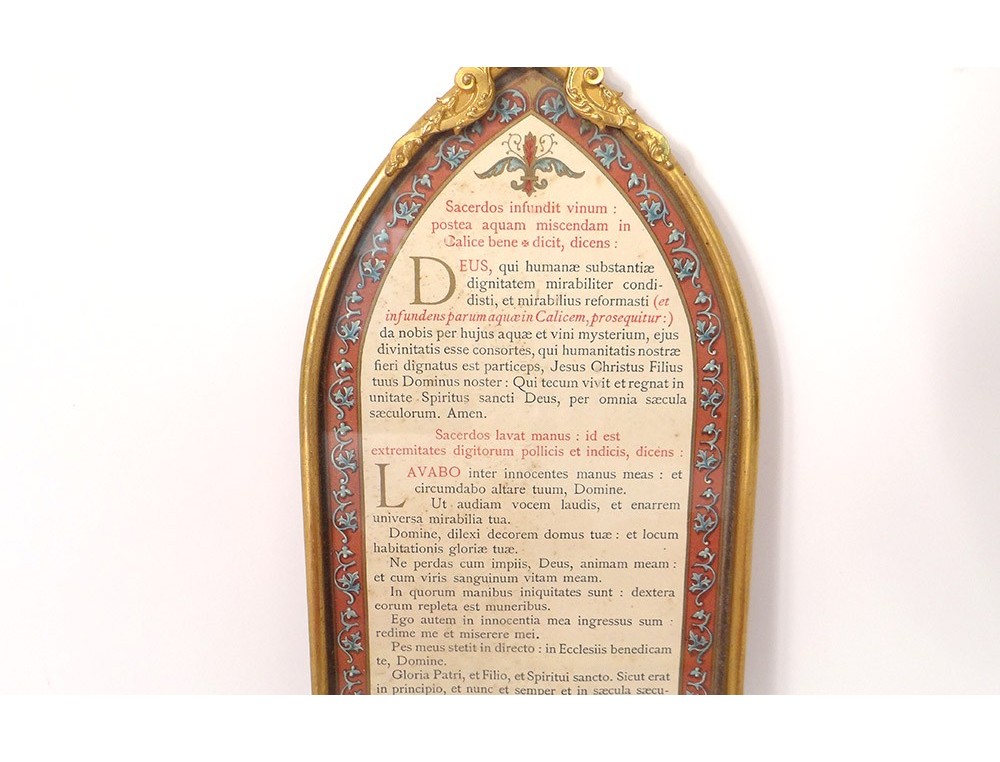 Sacerdos infundit vinum :
postea aquam miscendam in
Calice bene ✠ dicit, dicens :
DEUS, qui humanæ substantiæ
dignitatem mirabiliter condi-
disti, et mirabilius reformasti (et
infundens parum aquæ in Calicem, prosequitur :)
da nobis per hujus aquæ et vini mysterium, ejus
divinitatis esse consortes, qui humanitatis nostræ
fieri dignatus est particeps, Jesus Christus Filius
tuus Dominus noster : Qui tecum vivit et regnat in
unitate Spiritus sancti Deus, per omnia sæcula
sæculorum. Amen.
Sacerdos lavat manus : id est
extremitates digitorum pollicis et indicis, dicens :
LAVABO inter innocentes manus meas : et
circumdabo altare tuum, Domine.
Ut audiam vocem laudis, et enarrem
universa mirabilia tua.
Domine, dilexi decorem domus tuæ : et locum
habitationis gloriæ tuæ.
Ne perdas cum impiis, Deus, animam meam :
et cum viris sanguinum vitam meam.
In quorum manibus iniquitates sunt : dextera
eorum repleta est muneribus.
Ego autem in innocentia mea ingressus sum :
redime me et miserere mei.
Pes meus stetit in directo : in Ecclesiis benedicam
te, Domine.
Gloria Patri, et Filio, et Spiritui sancto. Sicut erat
in principio, et nunc et semper et in sæcula sæcu-